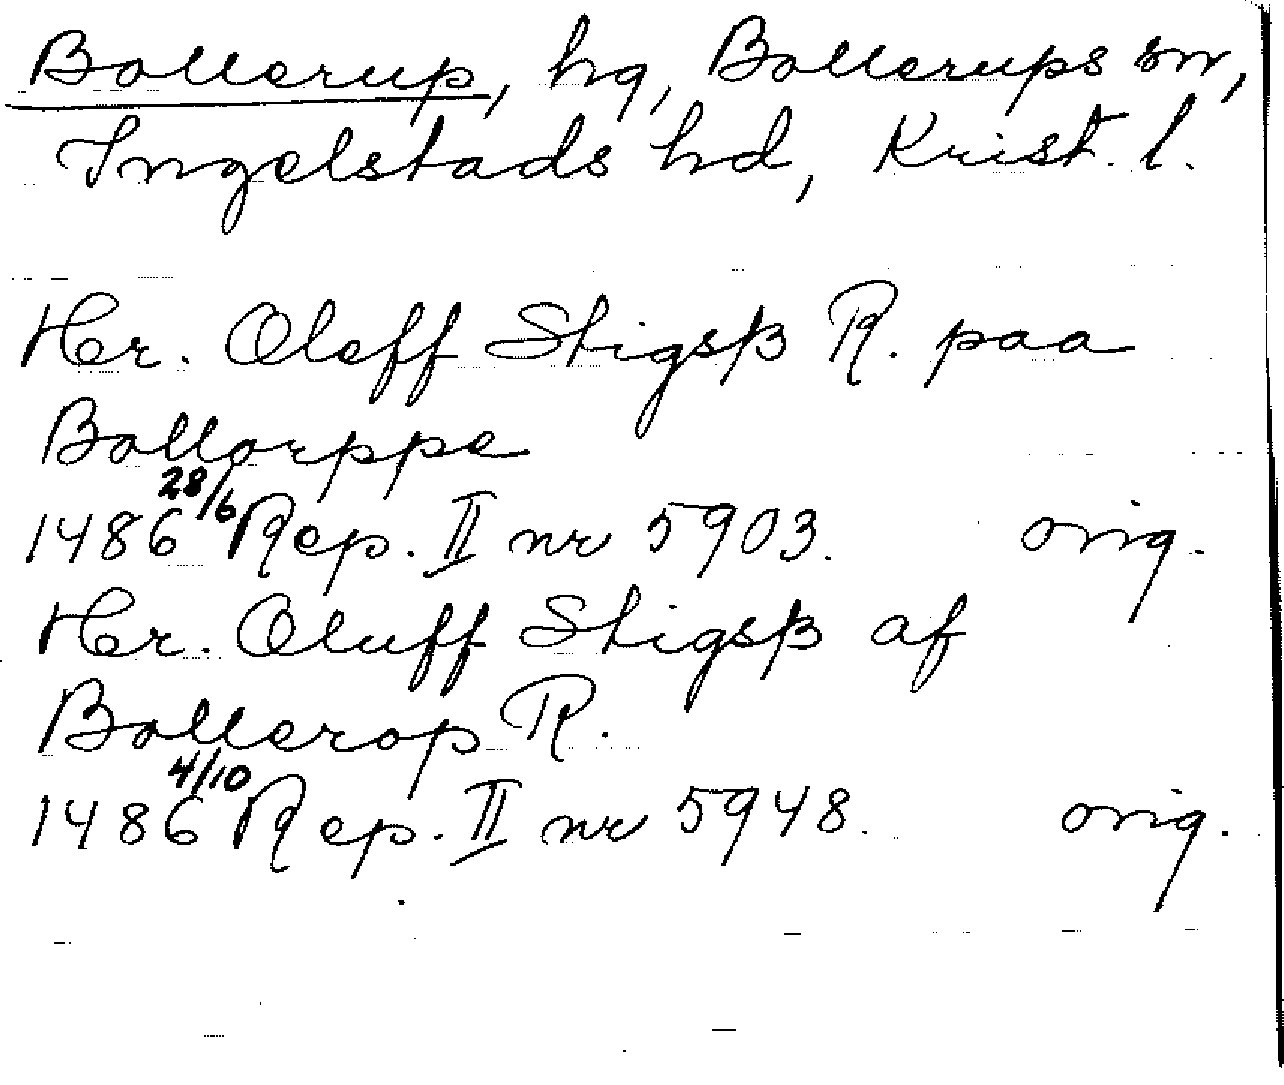 Bollerup, hg, Bollerups sn,
Ingelstads hd, Krist. l.
Her. Oleff Stigsß R. paa
Bollorppe
1486 28/6 Rep. II nr 5903. orig.
Her. Oluff Stigsß af
Bollerop R.
1486 4/10 Rep. II nr 5948. orig.